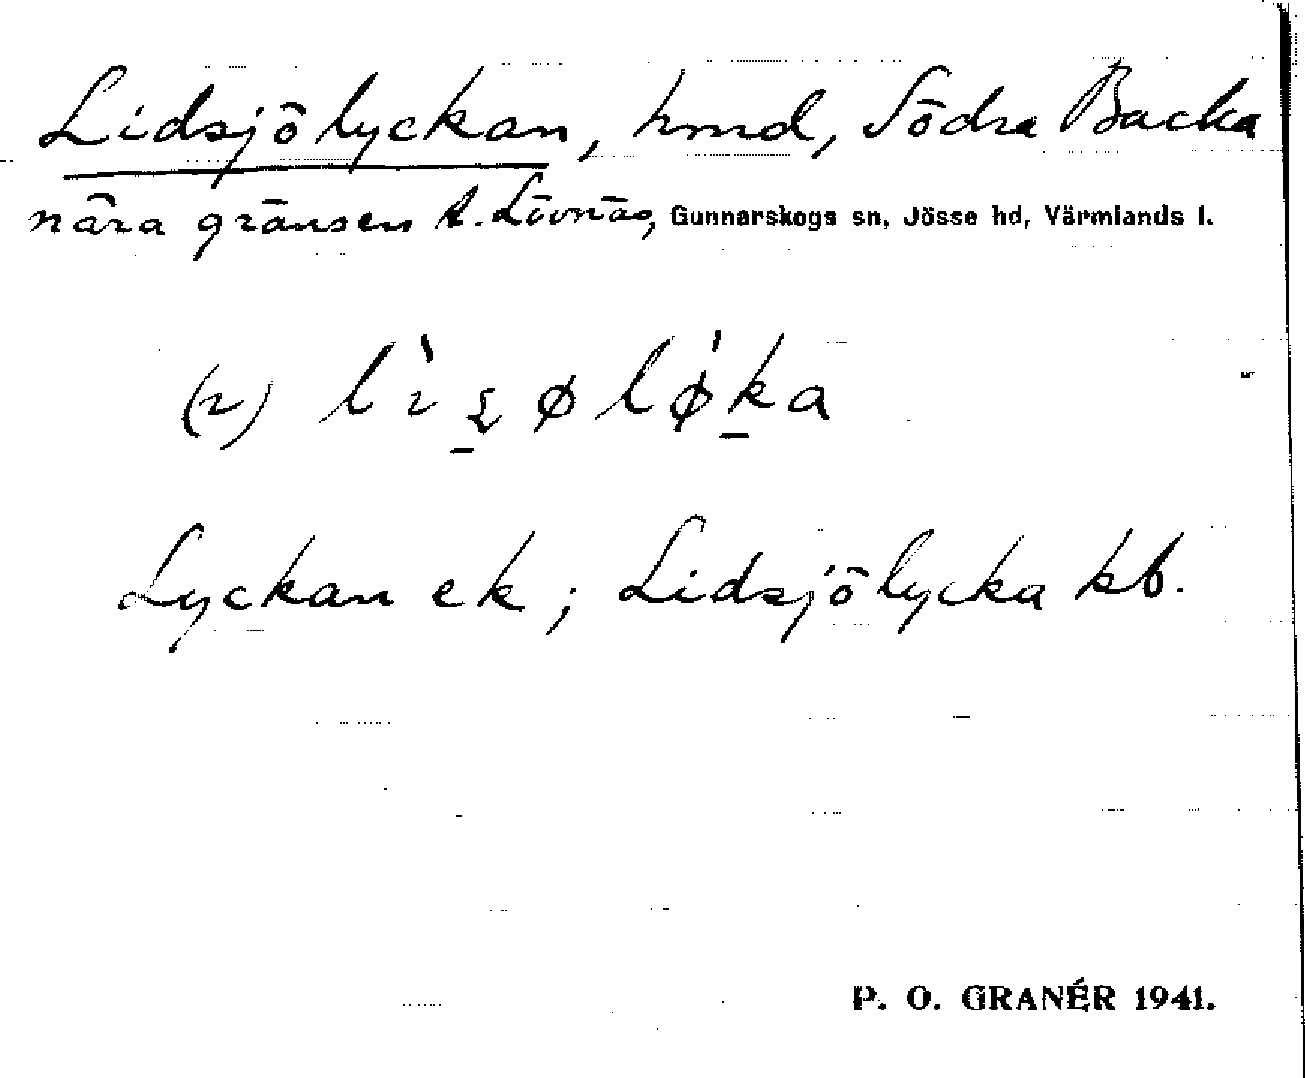 Lidsjölyckan, hmd, Södra Backa
nära gränsen t. Lövnäs, Gunnarskogs sn, Jösse hd, Värmlands l.
(2)
Lyckan ek; Lidsjölycka kb.
P. O. GRANÉR 1941.